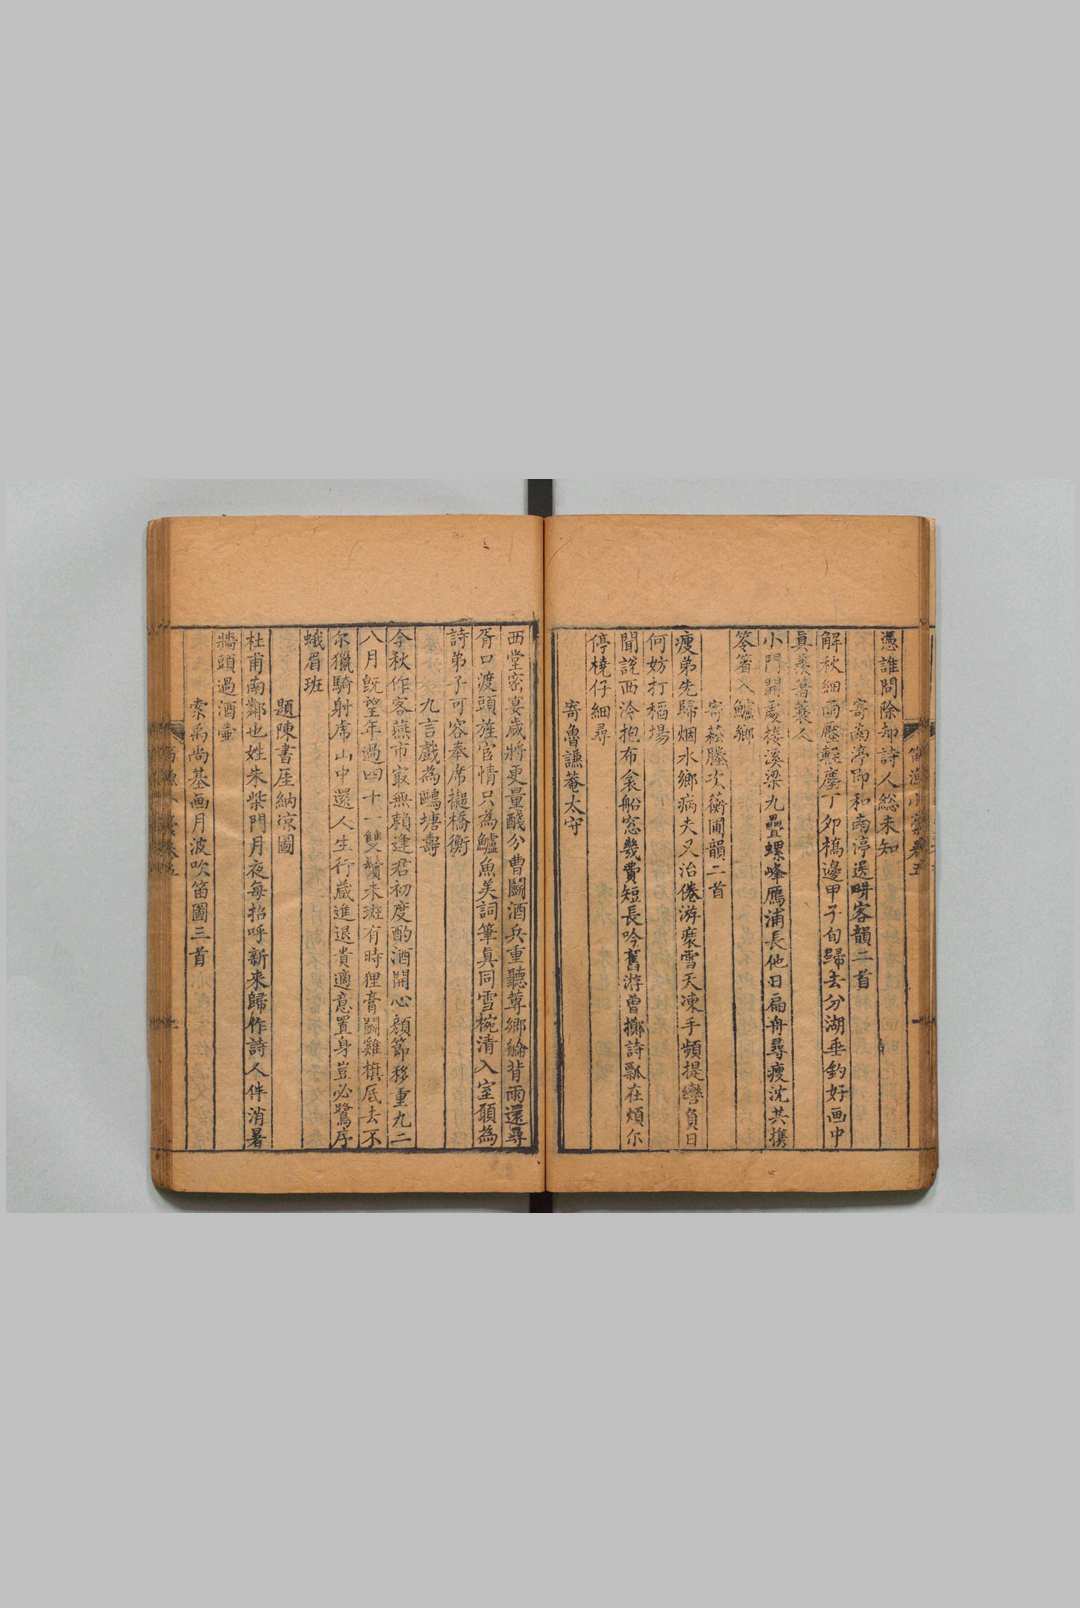 憑誰問除却詩人總未知
寄南亭即和南渟送  客韻二首
解秋細雨壓輕塵丁卯橋邊甲子旬歸去分湖垂釣好画中
真着蓑人
小門開處接溪梁九疊螺峰鴈浦長他日扁舟尋瘦沈共攜
笭箵入鱸鄉
寄 塍次蘅圃韻二首
瘦弟先歸烟水鄉病夫又治倦游裝雪天凍手頻提轡負日
何妨打稻場
聞說西泠抱布衾船窓幾費短長吟舊游曾擲詩瓢在煩尔
停橈仔細尋
寄魯謙菴太守
西堂密宴歲將更量醆分曹鬬酒兵重聽蓴鄉綸背雨還尋
胥口渡頭旌宦情只為鱸魚美詞筆真同雪椀清入室願為
詩弟子可容奉席禮橋衡
九言戲為鷗塘壽
今秋作客燕市寂無賴逢君初度酌酒開心顏節移重九二
八月旣望年過四十一雙鬢未斑有時狸膏鬬雞横厎去不
尔獵騎射虎山中還人生行藏進退貴適意置身豈必鷺序
蛾眉班
題陳書厓納凉圖
杜甫南鄰也姓朱柴門月夜每招呼新來歸作詩人伴消暑
牆頭過酒壺
索禹尚基画月波吹笛圖三首